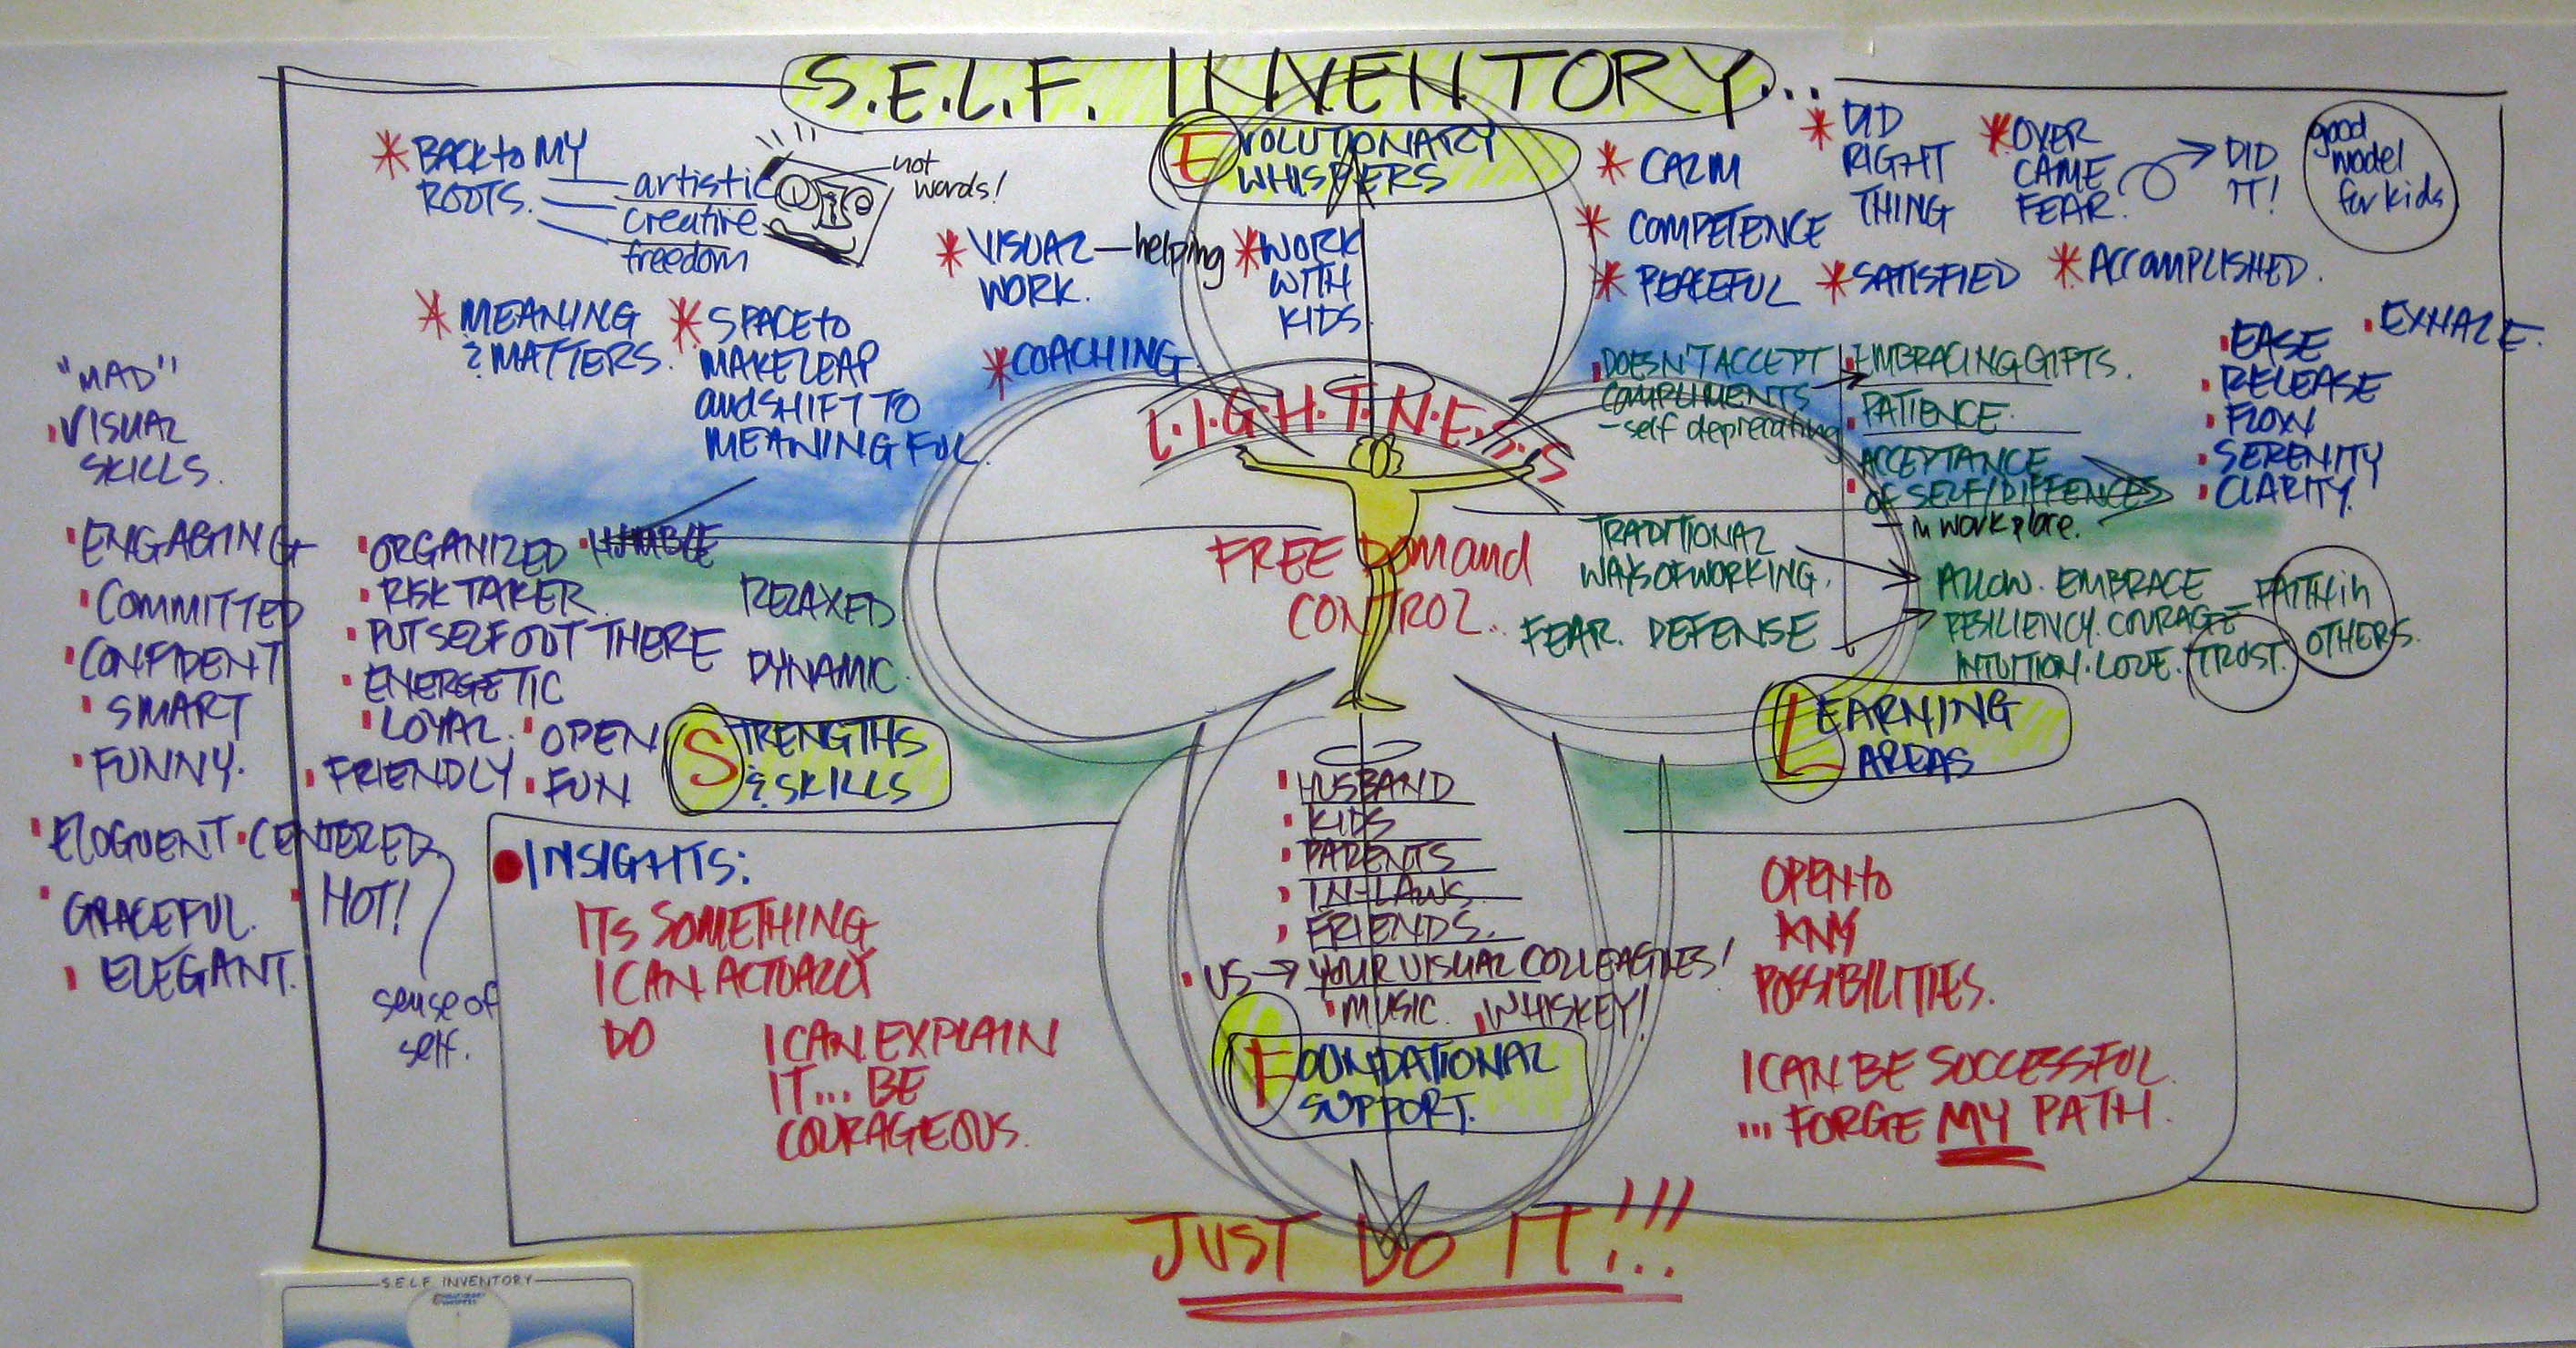 S.E.L.F. INVENTORY...
EVOLUTIONARY
WHISPERS
* BACK to MY
ROOTS.
artistic
creative
freedom
not
words!
* MEANING
& MATTERS.
* SPACE to
MAKE LEAP
and SHIFT TO
MEANINGFUL.
* VISUAL — helping
WORK.
* WORK
WITH
KIDS
* COACHING
* CALM
* COMPETENCE
* PEACEFUL
* DID
RIGHT
THING
* OVER
CAME
FEAR.
DID
IT!
good
model
for kids
* SATISFIED
* ACCOMPLISHED.
• EXHALE.
• EASE
• RELEASE
• FLOW
• SERENITY
• CLARITY.
L.I.G.H.T.N.E.S.S
FREEDOM and
CONTROL..
• DOESN'T ACCEPT
COMPLIMENTS
- self deprecating
• EMBRACING GIFTS.
• PATIENCE.
• ACCEPTANCE
OF SELF/DIFFENCES
- in workplace.
TRADITIONAL
WAYS OF WORKING.
FEAR. DEFENSE
ALLOW. EMBRACE
RESILIENCY. COURAGE
INTUITION. LOVE. TRUST.
FAITH in
OTHERS.
LEARNING
AREAS
"MAD"
• VISUAL
SKILLS.
• ENGAGING
• COMMITTED
• CONFIDENT
• SMART
• FUNNY.
• ELOQUENT • CENTERED
• GRACEFUL.
• HOT!
• ELEGANT.
sense of
self.
• ORGANIZED • HUMBLE
• RISK TAKER
• PUT SELF OUT THERE
• ENERGETIC
• LOYAL. • OPEN
• FRIENDLY • FUN
RELAXED
DYNAMIC.
STRENGTHS
& SKILLS
• INSIGHTS:
ITS SOMETHING
I CAN ACTUALLY
DO
I CAN EXPLAIN
IT... BE
COURAGEOUS.
• HUSBAND
• KIDS
• PARENTS
• IN-LAWS.
• FRIENDS.
• US → YOUR VISUAL COLLEAGUES!
• MUSIC. • WHISKEY!
FOUNDATIONAL
SUPPORT.
OPEN to
ANY
POSSIBILITIES.
I CAN BE SUCCESSFUL
... FORGE MY PATH.
JUST DO IT!!!
SELF INVENTORY